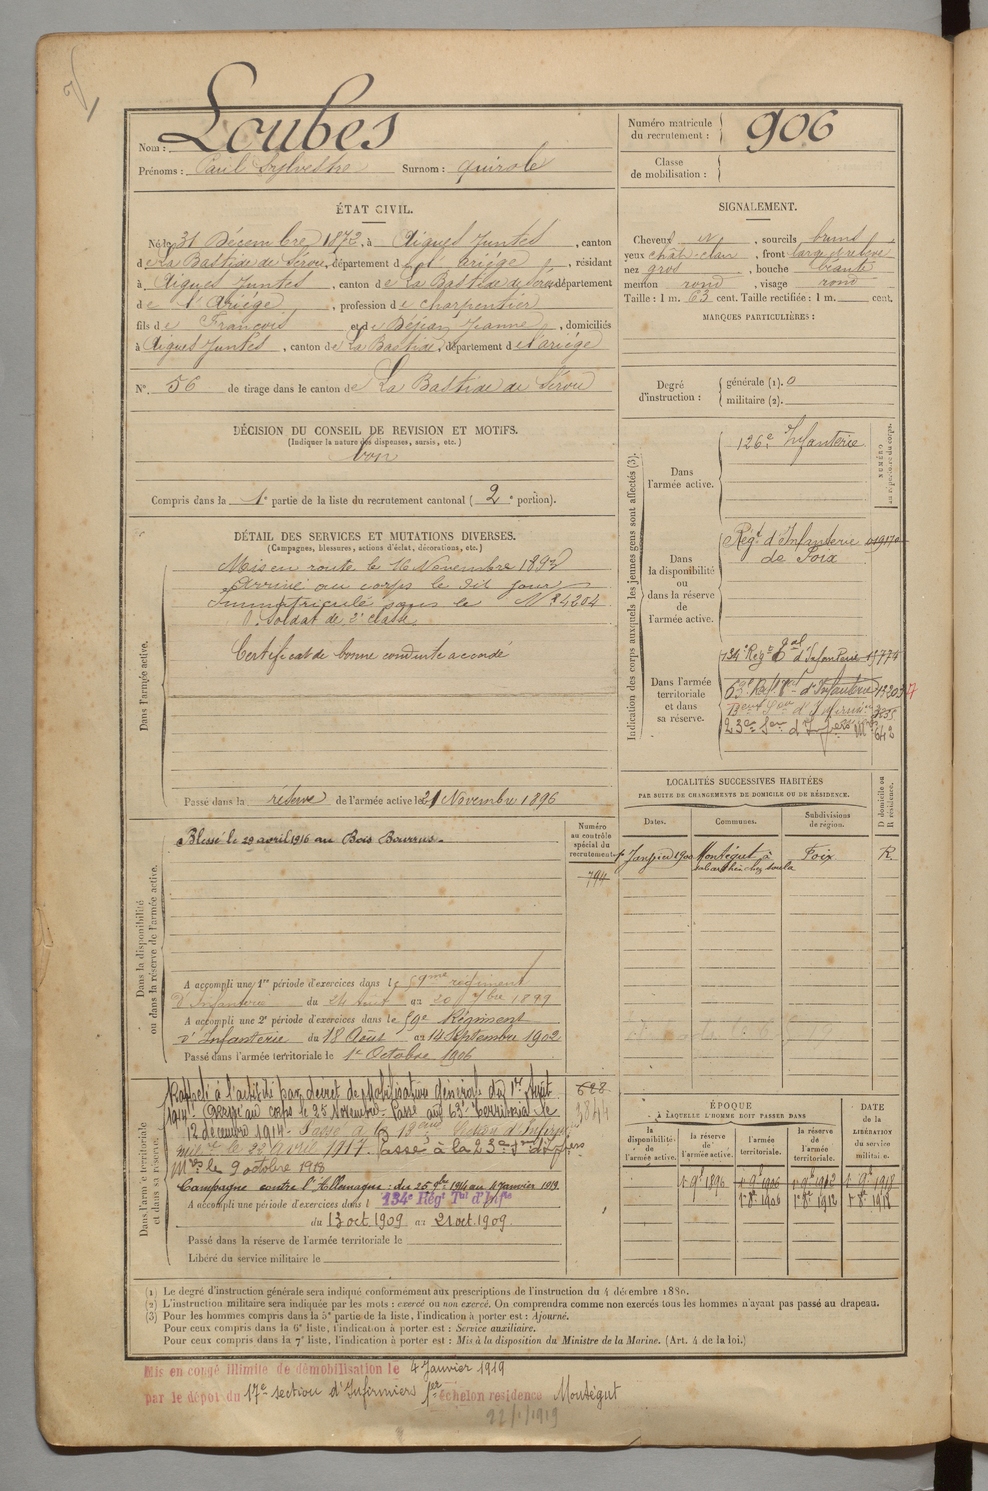 Nom : Loubes
Prénoms : Paul Sylvestre Surnom : quirole
Numéro matricule du recrutement : 906
Classe de mobilisation :
ÉTAT CIVIL.
Né le 31 Décembre 1872, à Aigues Juntes, canton
de La Bastide de Sérou, département de l'ariége, résidant
à Aigues Juntes, canton de La Bastide de Sérou département
de l'Ariége, profession de charpentier
fils de François et de Déjean Jeanne, domiciliés
à Aigues Juntes, canton de La Bastide, département de l'ariége
N° 56 de tirage dans le canton de La Bastide de Sérou
SIGNALEMENT.
Cheveux n, sourcils bruns
yeux chat-clair, front large
nez gros, bouche béante
menton rond, visage rond
Taille : 1 m. 63 cent. Taille rectifiée : 1 m. cent.
MARQUES PARTICULIÈRES :
Degré d'instruction : générale (1). 0
militaire (2).
DÉCISION DU CONSEIL DE REVISION ET MOTIFS.
(Indiquer la nature des dispenses, sursis, etc.)
bon
Compris dans la 1e partie de la liste du recrutement cantonal ( 2e portion).
DÉTAIL DES SERVICES ET MUTATIONS DIVERSES.
(Campagnes, blessures, actions d'éclat, décorations, etc.)
Dans l'armée active.
Mis en route le 16 Novembre 1893
Arrivé au corps le dit jour
Immatriculé sous le N° 4204
Soldat de 2e classe
Certificat de bonne conduite accordé
Passé dans la réserve de l'armée active le 21 Novembre 1896
Indication des corps auxquels les jeunes gens sont affectés (3).
NUMÉRO au répertoire du corps.
Dans l'armée active.
126e Infanterie
Dans la disponibilité ou dans la réserve de l'armée active.
Régt d'Infanterie
de Foix
Dans l'armée territoriale et dans sa réserve.
134e Regt d'Infanterie
63e Rgt d'Infanterie
23e Son d'Infers Mres 642
Dans la disponibilité ou dans la réserve de l'armée active.
Numéro au contrôle spécial du recrutement
794
Blessé le 29 avril 1916 au Bois Bourrus.
A accompli une 1re période d'exercices dans le 59me régiment
d'Infanterie du 24 Août au 20 7bre 1899
A accompli une 2e période d'exercices dans le 59e Régiment
d'Infanterie du 18 Août au 14 Septembre 1902
Passé dans l'armée territoriale le 1er Octobre 1906
LOCALITÉS SUCCESSIVES HABITÉES
PAR SUITE DE CHANGEMENTS DE DOMICILE OU DE RÉSIDENCE.
Dates. Communes. Subdivisions de région. D domicile ou R résidence.
1r Janvier 1900 Montégut à Foix R.
chez Soula
Dans l'armée territoriale et dans sa réserve.
628
3844
Rappelé à l'activité par decret de Mobilisation Générale du 1er Août
1914. Arrivé au corps le 25 Novembre. Passé au 63e territorial le
12 décembre 1914. Passé à la Section d'Infirmiers
mil. le 22 Avril 1917. Passé à la 23e Son d'Infers
Mres le 9 octobre 1918
Campagne contre l'Allemagne : du 25 9bre 1914 au 4 Janvier 1919.
A accompli une période d'exercices dans l 134e Régt Tal d'Infie
du 13 oct. 1909 au 21 oct. 1909.
Passé dans la réserve de l'armée territoriale le
Libéré du service militaire le
ÉPOQUE
À LAQUELLE L'HOMME DOIT PASSER DANS
la disponibilité de l'armée active. la réserve de l'armée active. l'armée territoriale. la réserve de l'armée territoriale.
DATE de la LIBÉRATION du service militaire.
1r 9bre 1896 1r 9bre 1906 1r 9bre 1912 1r 9bre 1918
1r 8bre 1906 1r 8bre 1912 1r 8bre 1918
(1) Le degré d'instruction générale sera indiqué conformément aux prescriptions de l'instruction du 4 décembre 1889.
(2) L'instruction militaire sera indiquée par les mots : exercé ou non exercé. On comprendra comme non exercés tous les hommes n'ayant pas passé au drapeau.
(3) Pour les hommes compris dans la 5e partie de la liste, l'indication à porter est : Ajourné.
Pour ceux compris dans la 6e liste, l'indication à porter est : Service auxiliaire.
Pour ceux compris dans la 7e liste, l'indication à porter est : Mis à la disposition du Ministre de la Marine. (Art. 4 de la loi.)
Mis en congé illimité de démobilisation le 4 Janvier 1919
par le dépôt du 17e section d'Infirmiers 1er échelon résidence Montégut
22/1/1919